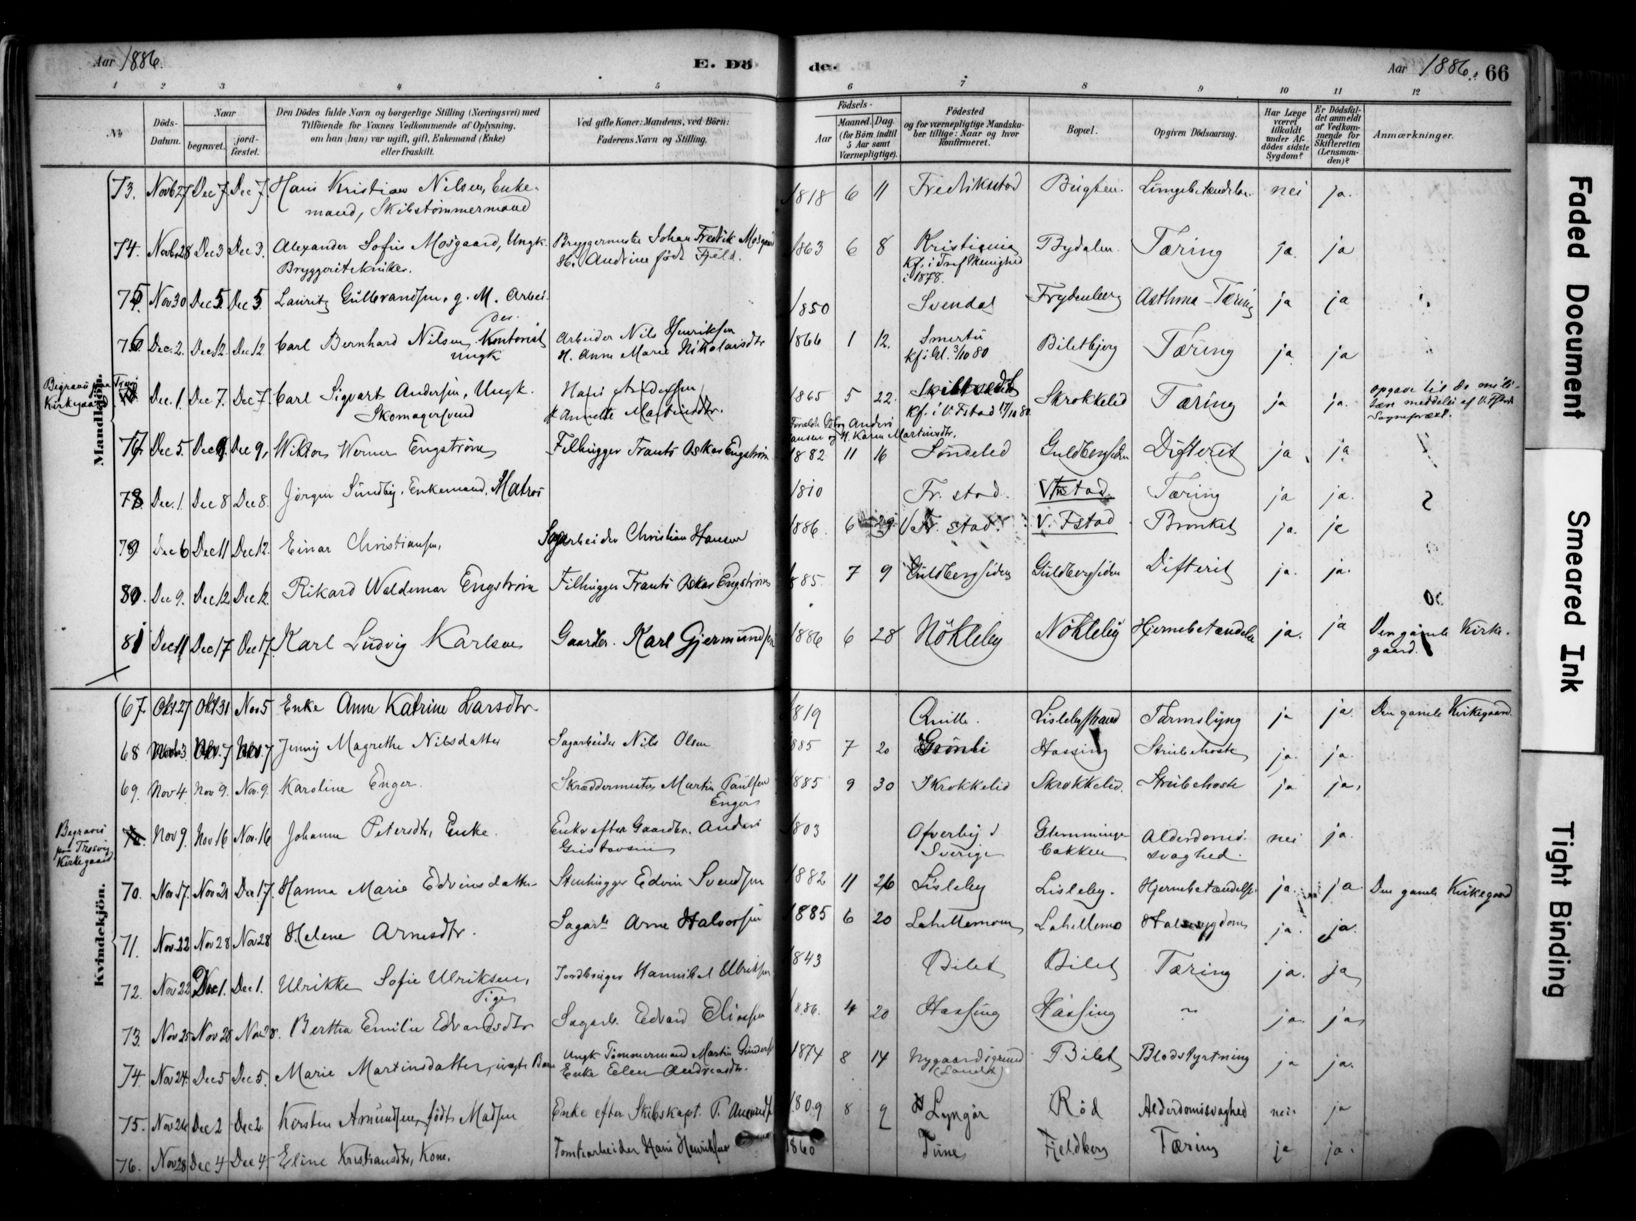 Aar 1886. E. Dö de. Aar 1886. 66
1 2 3 4 5 6 7 8 9 10 11 12
No. Döds-Datum. Naar begravet. jordfæstet. Den Dödes fulde Navn og borgerlige Stilling (Næringsvei) med Tilföiende for Voxnes Vedkommende af Oplysning, om han (hun) var ugift, gift, Enkemand (Enke) eller fraskilt. Ved gifte Koner: Mandens, ved Börn: Faderens Navn og Stilling. Födsels- Aar Maaned. Dag. (for Börn indtil 5 Aar samt Værnepligtige). Födested og for værnepligtige Mandskaber tillige: Naar og hvor konfirmeret. Bopæl. Opgiven Dödsaarsag. Har Læge været tilkaldt under Afdödes sidste Sygdom? Er Dödsfaldet anmeldt af Vedkommende for Skifteretten (Lensmanden)? Anmærkninger.
Mandkjön.
73. Novb 27 Dec 7 Dec 7. Hans Kristian Nilsen, Enke- 1818 6 11 Fredriksstad Lungebetændelse nei ja.
mand, Skibstømmermand
74. Novb 28 Dec 3 Dec 3. Alexander Sofus Mosgaard, Ungk. Bryggermester Johan Fredrik Mosgaard 1863 6 8 Kristiania Bydalen. Tæring ja. ja
Bryggeritekniker. Andrine født Fjeld. Kf. i Menighed
i 1878.
75. Nov 30 Dec 5 Dec 5 Lauritz Gulbrandsen, g. M. Arbei- 1850 Svendal Frydenberg Asthma-Tæring ja ja
der.
76. Dec. 2. Dec 12. Dec 12 Carl Bernhard Nilsen, Kontorist Arbeider Nils Henriksen 1866 1 12. Smertu Biletbjerg Tæring ja ja
ungk H. Anne Marie Nikolaisdtr Kf. i Gl. 3/10 80
Begravet paa Kirkegaard Dec. 1. Dec 7. Dec 7 Carl Sigvart Andersen, Ungk. Hans Andersen 1865 5 22. Skrokkelid Tæring ja ja. Opgave til de mili-
Skomagersvend Annette Martinsdtr. Kf. i V. Fstad tære meddelt af V. Fstads
Sognepræst.
Forældre Anders
og H. Karen Martinsdtr.
77. Dec 5. Dec 9. Dec 9, Wiktor Werner Engstrøm Filhugger Frants Oskar Engstrøm 1882 11 16 Søndeled Guldbergsiden Difterit ja ja
78. Dec. 1. Dec 8 Dec 8. Jørgen Sundby, Enkemand, Matros 1810 Fr. stad. V. Fstad Tæring ja ja.
79 Dec 6 Dec 11 Dec 12. Einar Christiansen, Sagarbeider Christian Hansen 1886. 6 29 V. Fr. stad. V. Fstad Bronkit ja. ja
80. Dec 9. Dec 12 Dec 12. Rikard Waldemar Engstrøm Filhugger Frants Oskar Engstrøm 1885. 7 9 Guldbergsiden Guldbergsiden Difterit ja. ja.
81 Dec 11 Dec 17 Dec 17. Karl Ludvig Karlsen Gaardbr. Karl Gjermundsen 1886 6 28 Nökleby Nökleby Hjernebetændelse ja. ja Den gamle Kirke-
gaard.
Kvindekjön.
67. Okt. 27 Okt 31 Nov 5 Enke Anne Katrine Larsdtr 1819 Qville. Lislebystrand Tarmslyng ja ja. Den gamle Kirkegaard.
68 Nov 3. Nov. 7 Nov 7 Jenny Magrethe Nilsdatter Sagarbeider Nils Olsen 1885 7 20 Grönli Hassing Strubehoste ja. ja.
69. Nov 4. Nov 9. Nov 9. Karoline Enger. Skræddermester Martin Paulsen 1885 9 30 Skrokkelid Skrokkelid. Strubehoste ja ja.
Enger
Begravet paa Trosvig Kirkegaard Nov 9. Nov 16 Nov. 16 Johanne Petersdtr, Enke. Enke efter Gaardbr. Anders 1803 Ofverby i Glemminge- Alderdoms- nei ja.
Gustavsen Sverige bakken svaghed.
70. Nov 17. Nov 21 Dec 17. Hanna Marie Edvinsdatter Stenhugger Edvin Svendsen 1882 11 26 Lisleby Lisleby. Hjernebetændelse ja. ja Den gamle Kirkegaard
71. Nov 22 Nov 28 Nov 28 Helene Arnesdtr. Sagarb. Arne Halvorsen 1885 6 20 Lahellemoen Lahellemo Halssygdom ja. ja.
72. Nov 22 Dec 1. Dec 1. Ulrikke Sofie Ulriksen, Jordbruger Hannibal Ulriksen 1843 Bilet Bilet Tæring ja. ja
Pige
73. Nov 25 Nov 28 Nov 28. Berthe Emilie Edvardsdtr Sagarb. Edvard Eliassen 1886. 4 20 Hassing Hassing ~ ja. ja
74 Nov 24. Dec 5 Dec 5. Marie Martinsdatter, uægte Barn Ungk. Tømmermand Martin Gundersen 1874 8 14 Nygaardsgrund Bilet Blodstyrtning ja ja.
Enke Elen Andreasdtr.
75. Nov 26 Dec 2 Dec 2. Kersten Amundsen, født Madsen Enke efter Skibskapt. P. Amundsen 1809 8 9 Lyngör Röd Alderdomssvaghed nei ja
76. Nov 28 Dec 4 Dec 4. Eline Kristiansdtr, Kone. Tomtearbeider Hans Henriksen 1860 Tune Fjeldberg Tæring ja ja.
Faded Document
Smeared Ink
Tight Binding